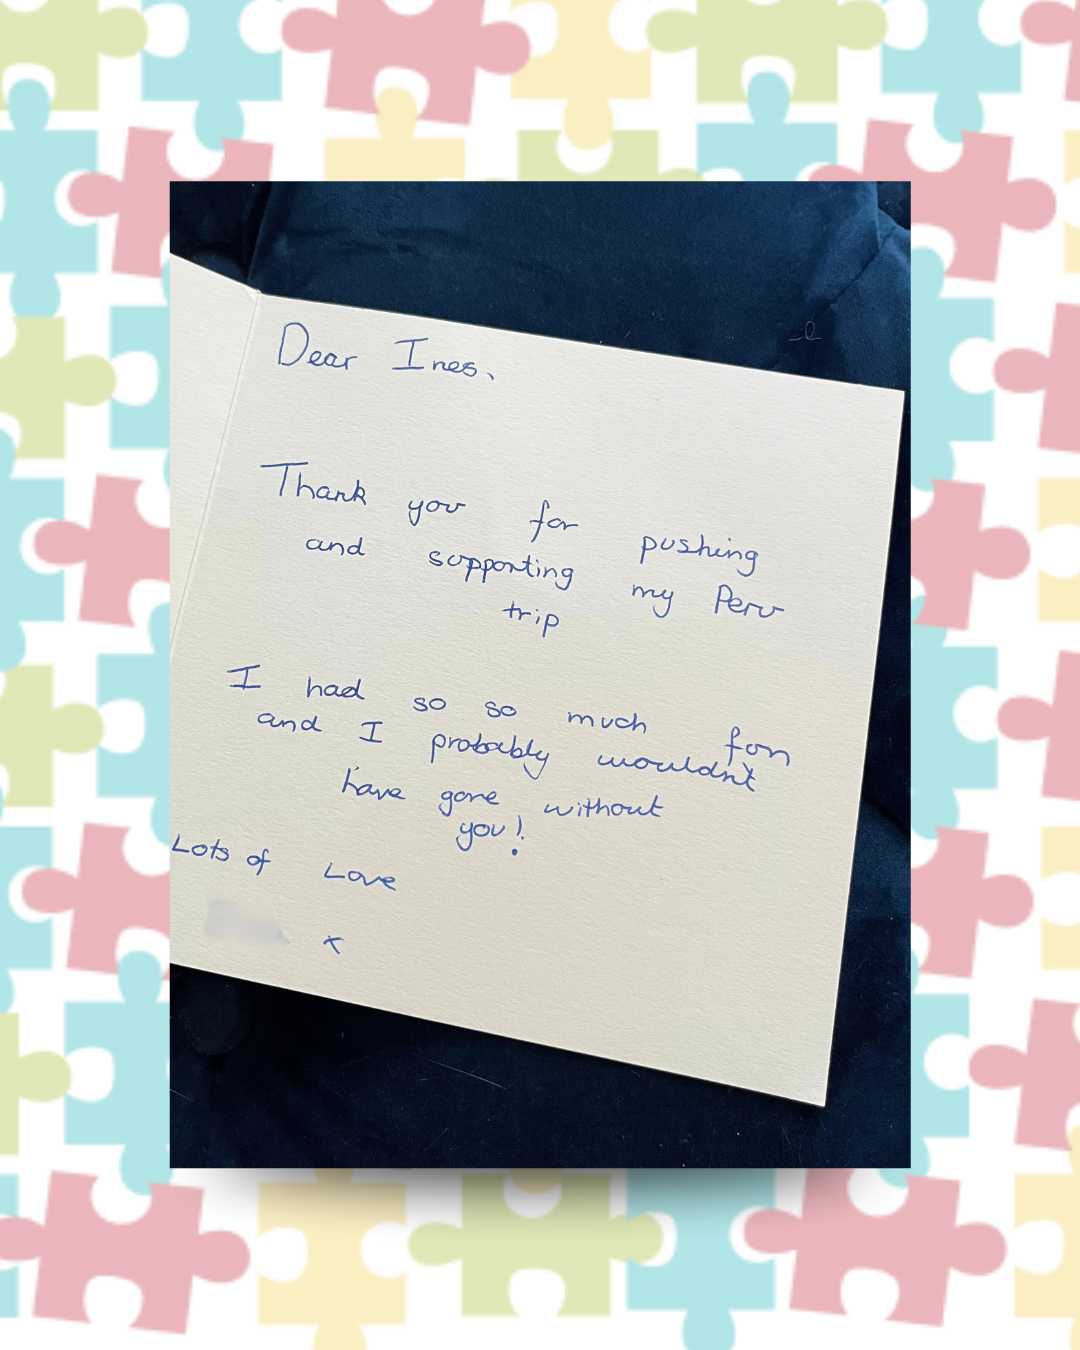 Dear Ines,
Thank you for pushing
and supporting my Peru
trip
I had so so much fun
and I probably wouldn't
have gone without
you!
Lots of Love
x